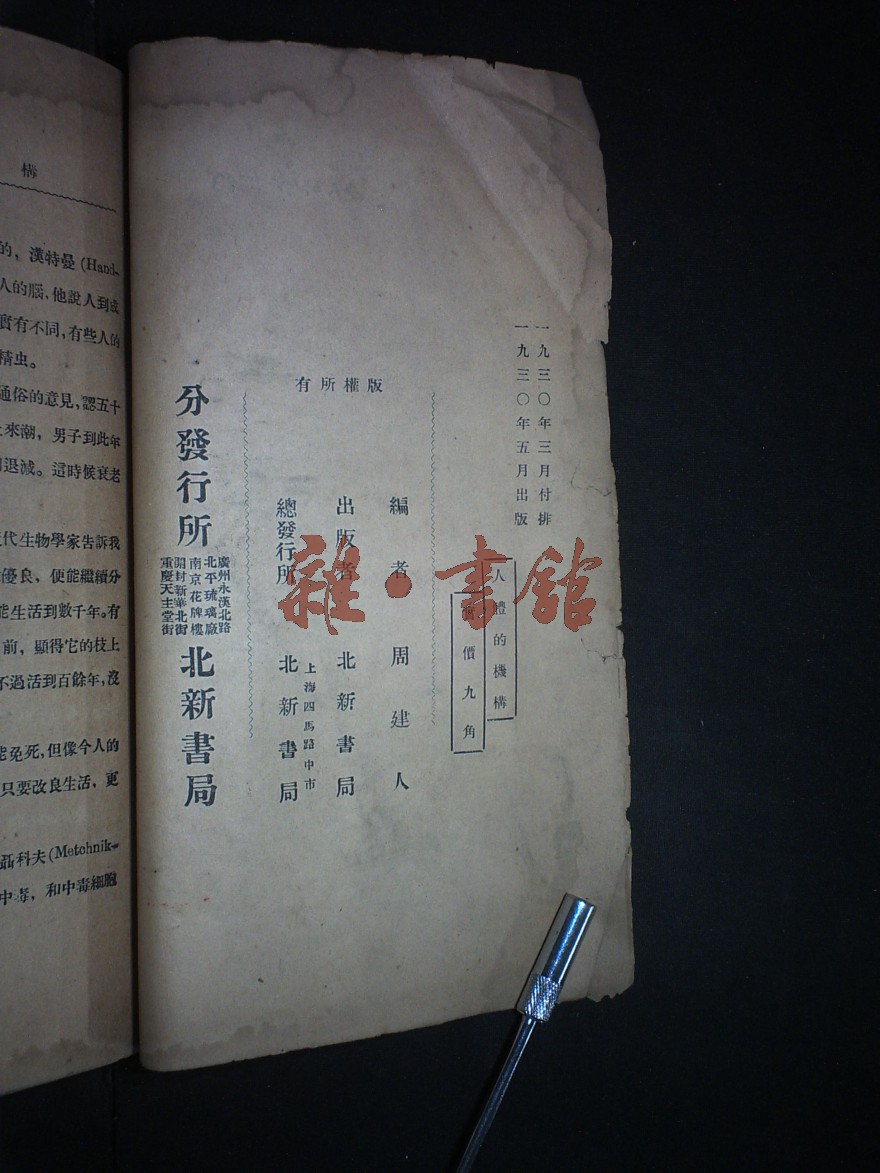 構
的，漢特曼(Hand-
人的腦，他說人到成
實有不同，有些人的
精虫。
通俗的意見，認五十
來潮，男子到此年
退減。這時候衰老
代生物學家告訴我
優良，便能繼續分
能生活到數千年。有
前，顯得它的枝上
不過活到百餘年，沒
能免死，但像今人的
只要改良生活，更
聶科夫(Metchnik-
中毒，和中毒細胞
一九三〇年三月付排
一九三〇年五月出版
人體的機構
實價九角
有所權版
編者 周建人
出版者 北新書局
上海四馬路中市
總發行所 北新書局
分發行所
廣州永漢北路
北平琉璃廠
南京花牌樓
開封新華北街
重慶天主堂街
北新書局
雜·書館